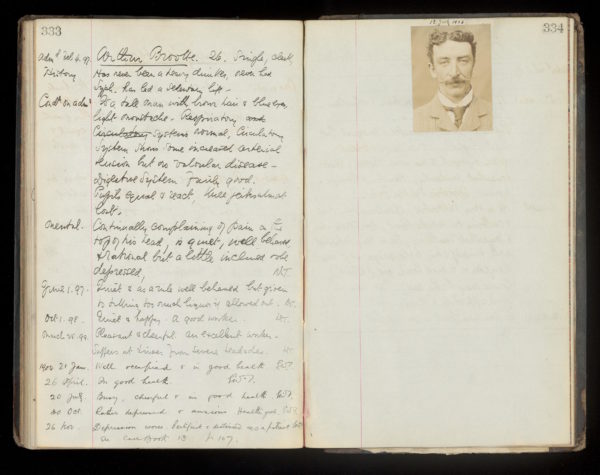 333
Admd Feb. 4. 97. Arthur Brooke. 26. Single, clerk
History Has never been a heavy drinker, never had
Syph. has led a sedentary life -
Condn on admn Is a tall man with brown hair & blue eyes,
light moustache. Respiratory and
Circulatory Systems normal, Circulatory
System shows some increased arterial
tension but no valvular disease -
Digestive System fairly good.
Pupils equal & react, knee jerks almost
lost.
Mental. Continually complaining of pain on the
top of his head, is quiet, well behaved
& rational but a little inclined to be
depressed,
April 1. 97. Quiet & as a rule well behaved but given
to drinking too much liquor if allowed out.
Oct. 1. 98. Quiet & happy. A good worker.
March 28. 99. Pleasant & cheerful. An excellent worker.
Suffers at times from severe headaches.
1900 21 Jan. Well occupied & in good health.
26 April. In good health.
20 July Busy, cheerful & in good health.
20 Oct. Rather depressed & anxious. Health good
26 Nov. Depression worse. Certified & as a patient
See Case Book 13 p. 107.
334